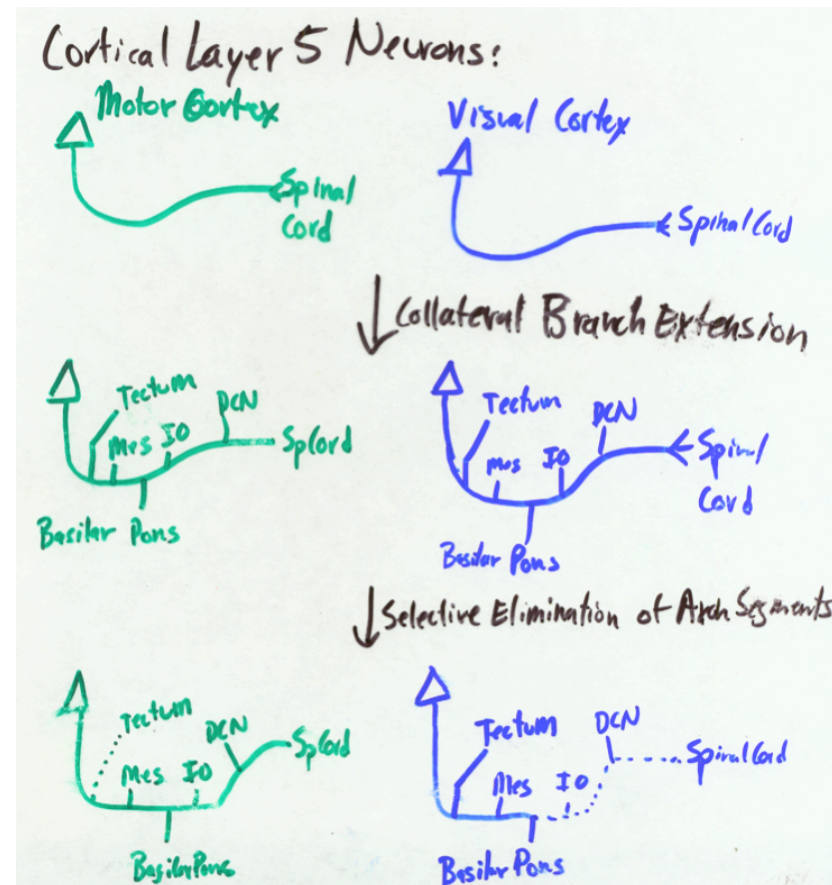 Cortical Layer 5 Neurons:
Motor Cortex
Visual Cortex
Spinal
Cord
Spinal Cord
Collateral Branch Extension
Tectum
DCN
Mes IO
SpCord
Basilar Pons
Tectum
DCN
Mes IO
Spinal
Cord
Basilar Pons
Selective Elimination of Segments
Tectum
DCN
SpCord
Mes IO
Basilar Pons
Tectum
DCN
Mes IO
Spinal Cord
Basilar Pons